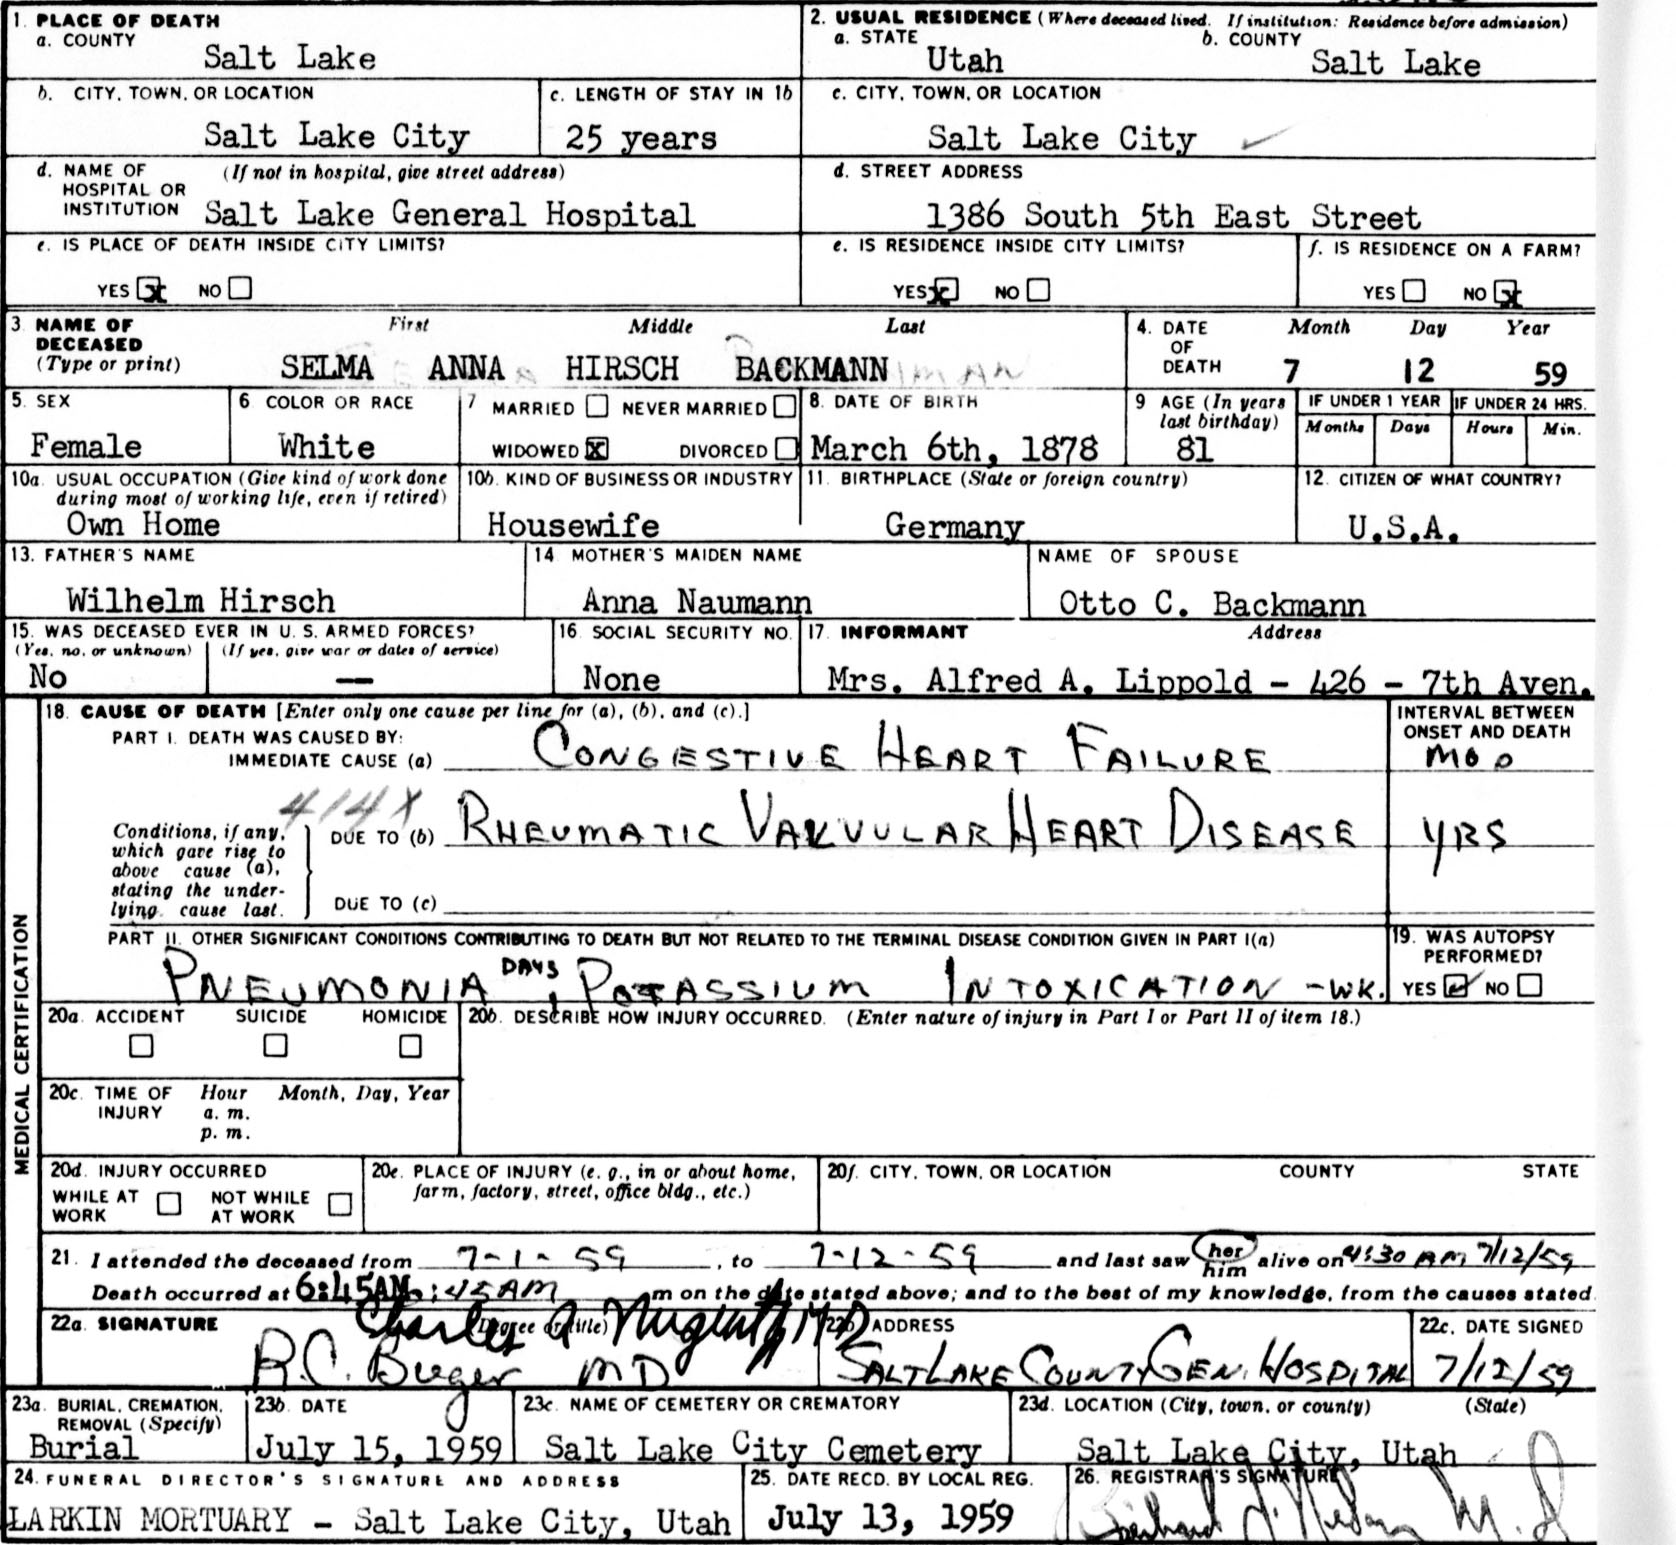 1. PLACE OF DEATH
a. COUNTY
Salt Lake
2. USUAL RESIDENCE (Where deceased lived. If institution: Residence before admission)
a. STATE
Utah
b. COUNTY
Salt Lake
b. CITY, TOWN, OR LOCATION
Salt Lake City
c. LENGTH OF STAY IN 1b
25 years
c. CITY, TOWN, OR LOCATION
Salt Lake City
d. NAME OF HOSPITAL OR INSTITUTION
(If not in hospital, give street address)
Salt Lake General Hospital
d. STREET ADDRESS
1386 South 5th East Street
e. IS PLACE OF DEATH INSIDE CITY LIMITS?
YES x NO
e. IS RESIDENCE INSIDE CITY LIMITS?
YES x NO
f. IS RESIDENCE ON A FARM?
YES NO x
3. NAME OF DECEASED
(Type or print)
First Middle Last
SELMA ANNA HIRSCH BACKMANN
4. DATE OF DEATH
Month Day Year
7 12 59
5. SEX
Female
6 COLOR OR RACE
White
7 MARRIED NEVER MARRIED
WIDOWED x DIVORCED
8. DATE OF BIRTH
March 6th, 1878
9 AGE (In years last birthday)
81
IF UNDER 1 YEAR
Months Days
IF UNDER 24 HRS.
Hours Min.
10a. USUAL OCCUPATION (Give kind of work done
during most of working life, even if retired)
Own Home
10b. KIND OF BUSINESS OR INDUSTRY
Housewife
11. BIRTHPLACE (State or foreign country)
Germany
12. CITIZEN OF WHAT COUNTRY?
U.S.A.
13. FATHER'S NAME
Wilhelm Hirsch
14 MOTHER'S MAIDEN NAME
Anna Naumann
NAME OF SPOUSE
Otto C. Backmann
15. WAS DECEASED EVER IN U. S. ARMED FORCES?
(Yes, no, or unknown) (If yes, give war or dates of service)
No —
16. SOCIAL SECURITY NO.
None
17. INFORMANT Address
Mrs. Alfred A. Lippold - 426 - 7th Aven.
MEDICAL CERTIFICATION
18. CAUSE OF DEATH [Enter only one cause per line for (a), (b), and (c).]
PART I. DEATH WAS CAUSED BY:
IMMEDIATE CAUSE (a) CONGESTIVE HEART FAILURE
INTERVAL BETWEEN
ONSET AND DEATH
MOO
414X
Conditions, if any,
which gave rise to
above cause (a),
stating the under-
lying cause last.
DUE TO (b) RHEUMATIC VALVULAR HEART DISEASE
YRS
DUE TO (c)
PART II. OTHER SIGNIFICANT CONDITIONS CONTRIBUTING TO DEATH BUT NOT RELATED TO THE TERMINAL DISEASE CONDITION GIVEN IN PART I(a)
PNEUMONIA DAYS, POTASSIUM INTOXICATION - WK.
19. WAS AUTOPSY PERFORMED?
YES NO
20a. ACCIDENT SUICIDE HOMICIDE
20b. DESCRIBE HOW INJURY OCCURRED. (Enter nature of injury in Part I or Part II of item 18.)
20c. TIME OF INJURY
Hour Month, Day, Year
a. m.
p. m.
20d. INJURY OCCURRED
WHILE AT WORK NOT WHILE AT WORK
20e. PLACE OF INJURY (e. g., in or about home,
farm, factory, street, office bldg., etc.)
20f. CITY, TOWN, OR LOCATION COUNTY STATE
21. I attended the deceased from 7-1-59, to 7-12-59 and last saw her him alive on 4:30 AM 7/12/59
Death occurred at 6:45AM :45AM m on the date stated above; and to the best of my knowledge, from the causes stated
22a. SIGNATURE (Degree or title)
Charles A Nugent MD
R.C. MD
22b ADDRESS
SALT LAKE COUNTY GEN. HOSPITAL
22c. DATE SIGNED
7/12/59
23a. BURIAL, CREMATION, REMOVAL (Specify)
Burial
23b. DATE
July 15, 1959
23c. NAME OF CEMETERY OR CREMATORY
Salt Lake City Cemetery
23d. LOCATION (City, town, or county) (State)
Salt Lake City, Utah
24. FUNERAL DIRECTOR'S SIGNATURE AND ADDRESS
LARKIN MORTUARY - Salt Lake City, Utah
25. DATE RECD. BY LOCAL REG.
July 13, 1959
26. REGISTRAR'S SIGNATURE
M.D.